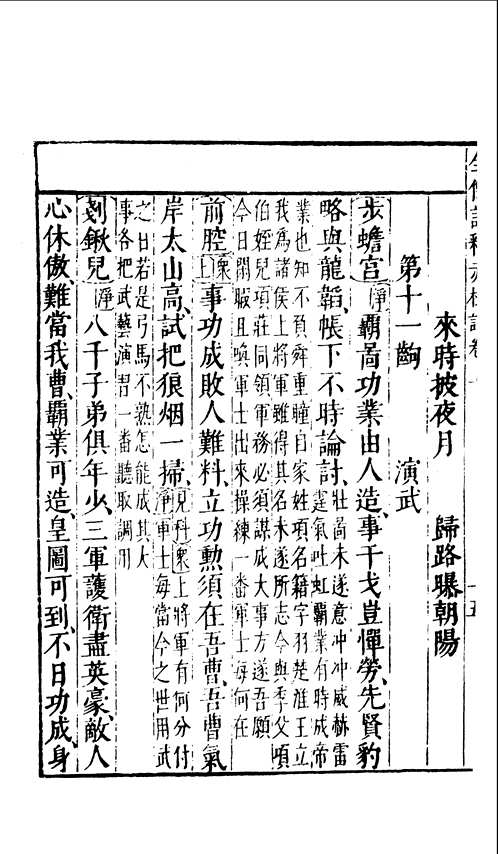 來時披夜月　歸路曝朝陽
第十一齣　演武
步蟾宮　淨　霸啚功業由人造、事干戈豈憚勞、先賢豹
略與龍韜、帳下不時論討、
壯啚未遂意冲冲威赫雷
霆氣吐虹霸業有時成帝
業也知不負舜重瞳自家姓項名籍字羽楚淮王立
我為諸侯上將軍雖得其名未遂所志今與季父項
伯姪兒項莊同領軍務必須謀成大事方遂吾願
今日閑暇且喚軍士出來操練一番軍士每何在
前腔　眾上　事功成敗人難料、立功勲須在吾曹、吾曹氣
岸太山高、試把狼烟一掃、
見科眾上將軍有何分付
淨軍士每當今之世用武
之日若是弓馬不熟怎能成其大
事各把武藝演習一番聽取調用
剗鍬兒　淨　八千子弟俱年少、三軍護衛盡英豪、敵人
心休傲、難當我曹、霸業可造、皇圖可到、不日功成、身